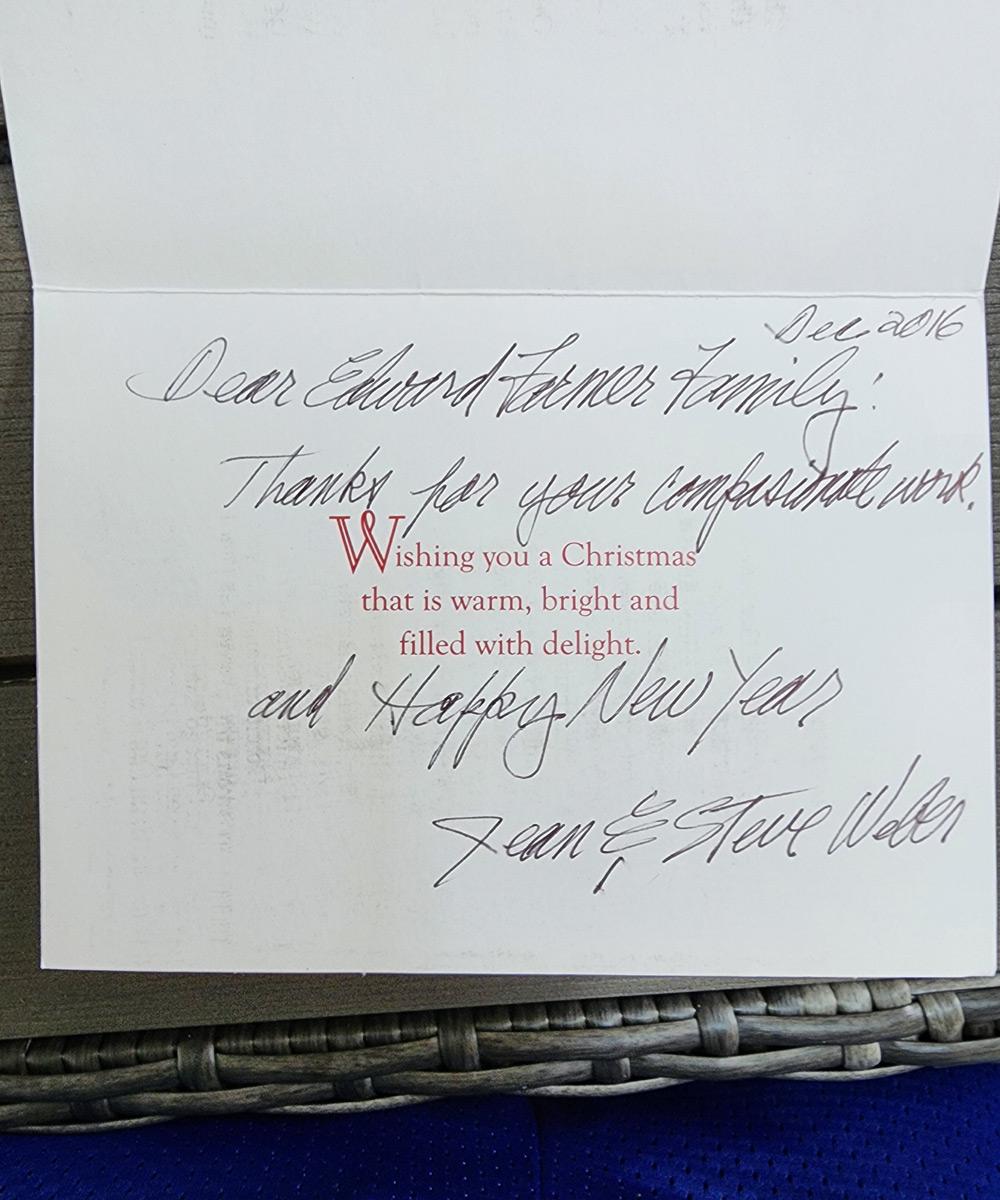 Dec 2016
Dear Edward Farmer Family:
Thanks for your compasionate work.
Wishing you a Christmas
that is warm, bright and
filled with delight.
and Happy New Year
Jean & Steve Weber